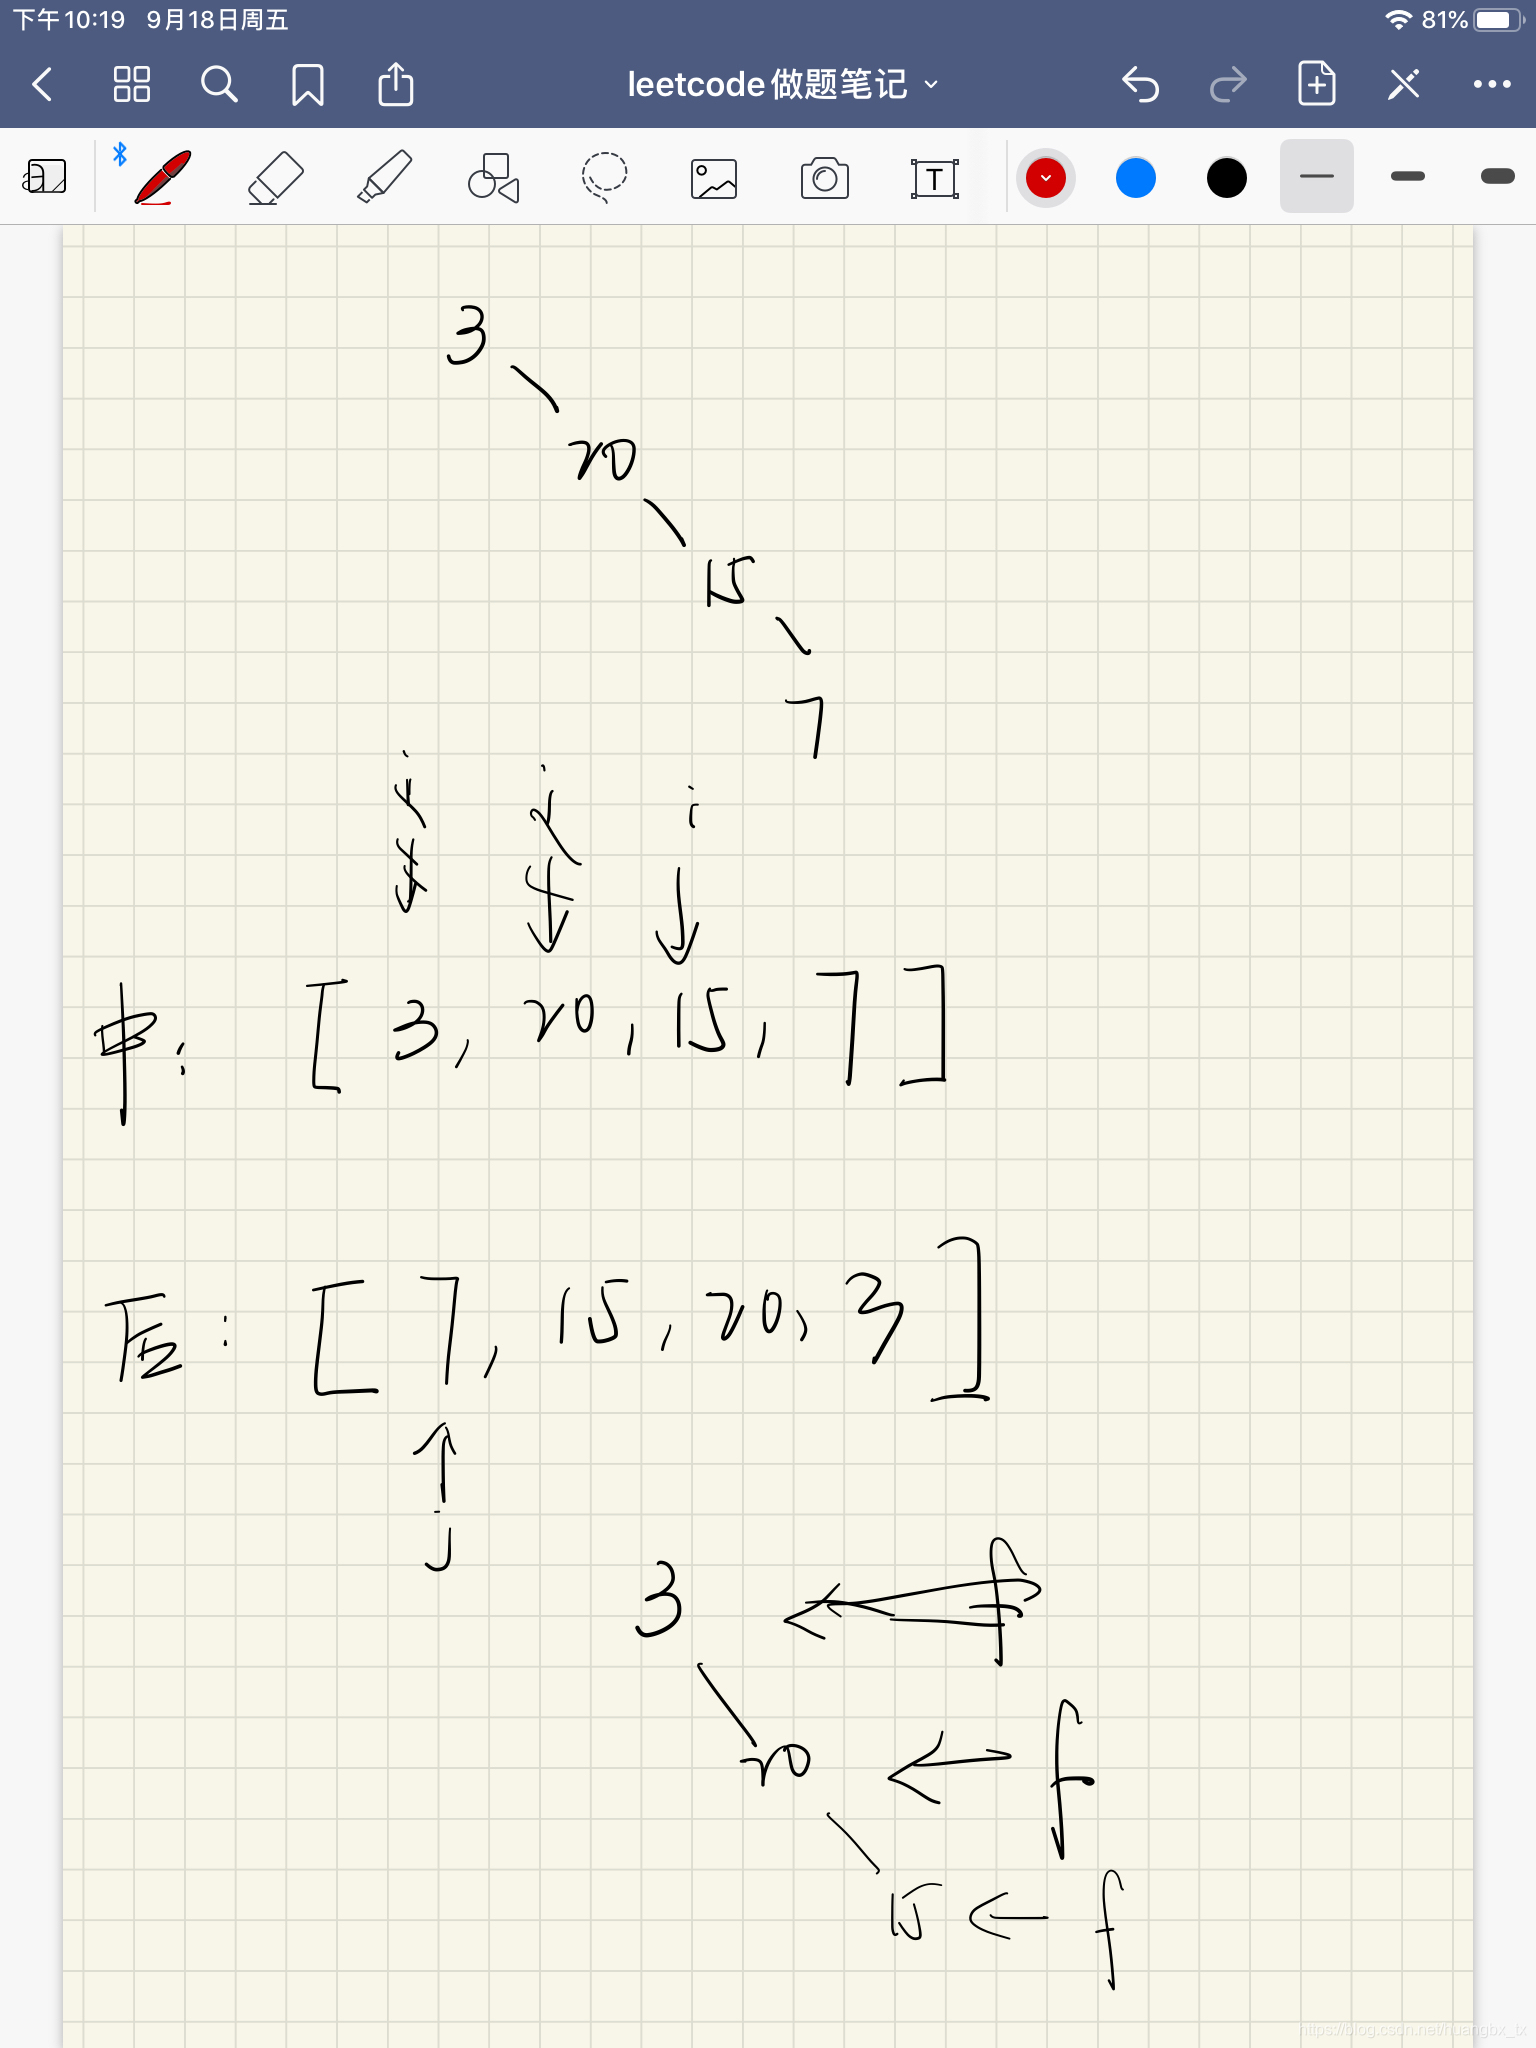 下午10:19 9月18日周五
81%
leetcode做题笔记
T
3
20
15
7
i
i
i
中: [3, 20, 15, 7]
后: [7, 15, 20, 3]
j
3 f
20 f
15 f
https://blog.csdn.net/huangbx_tx